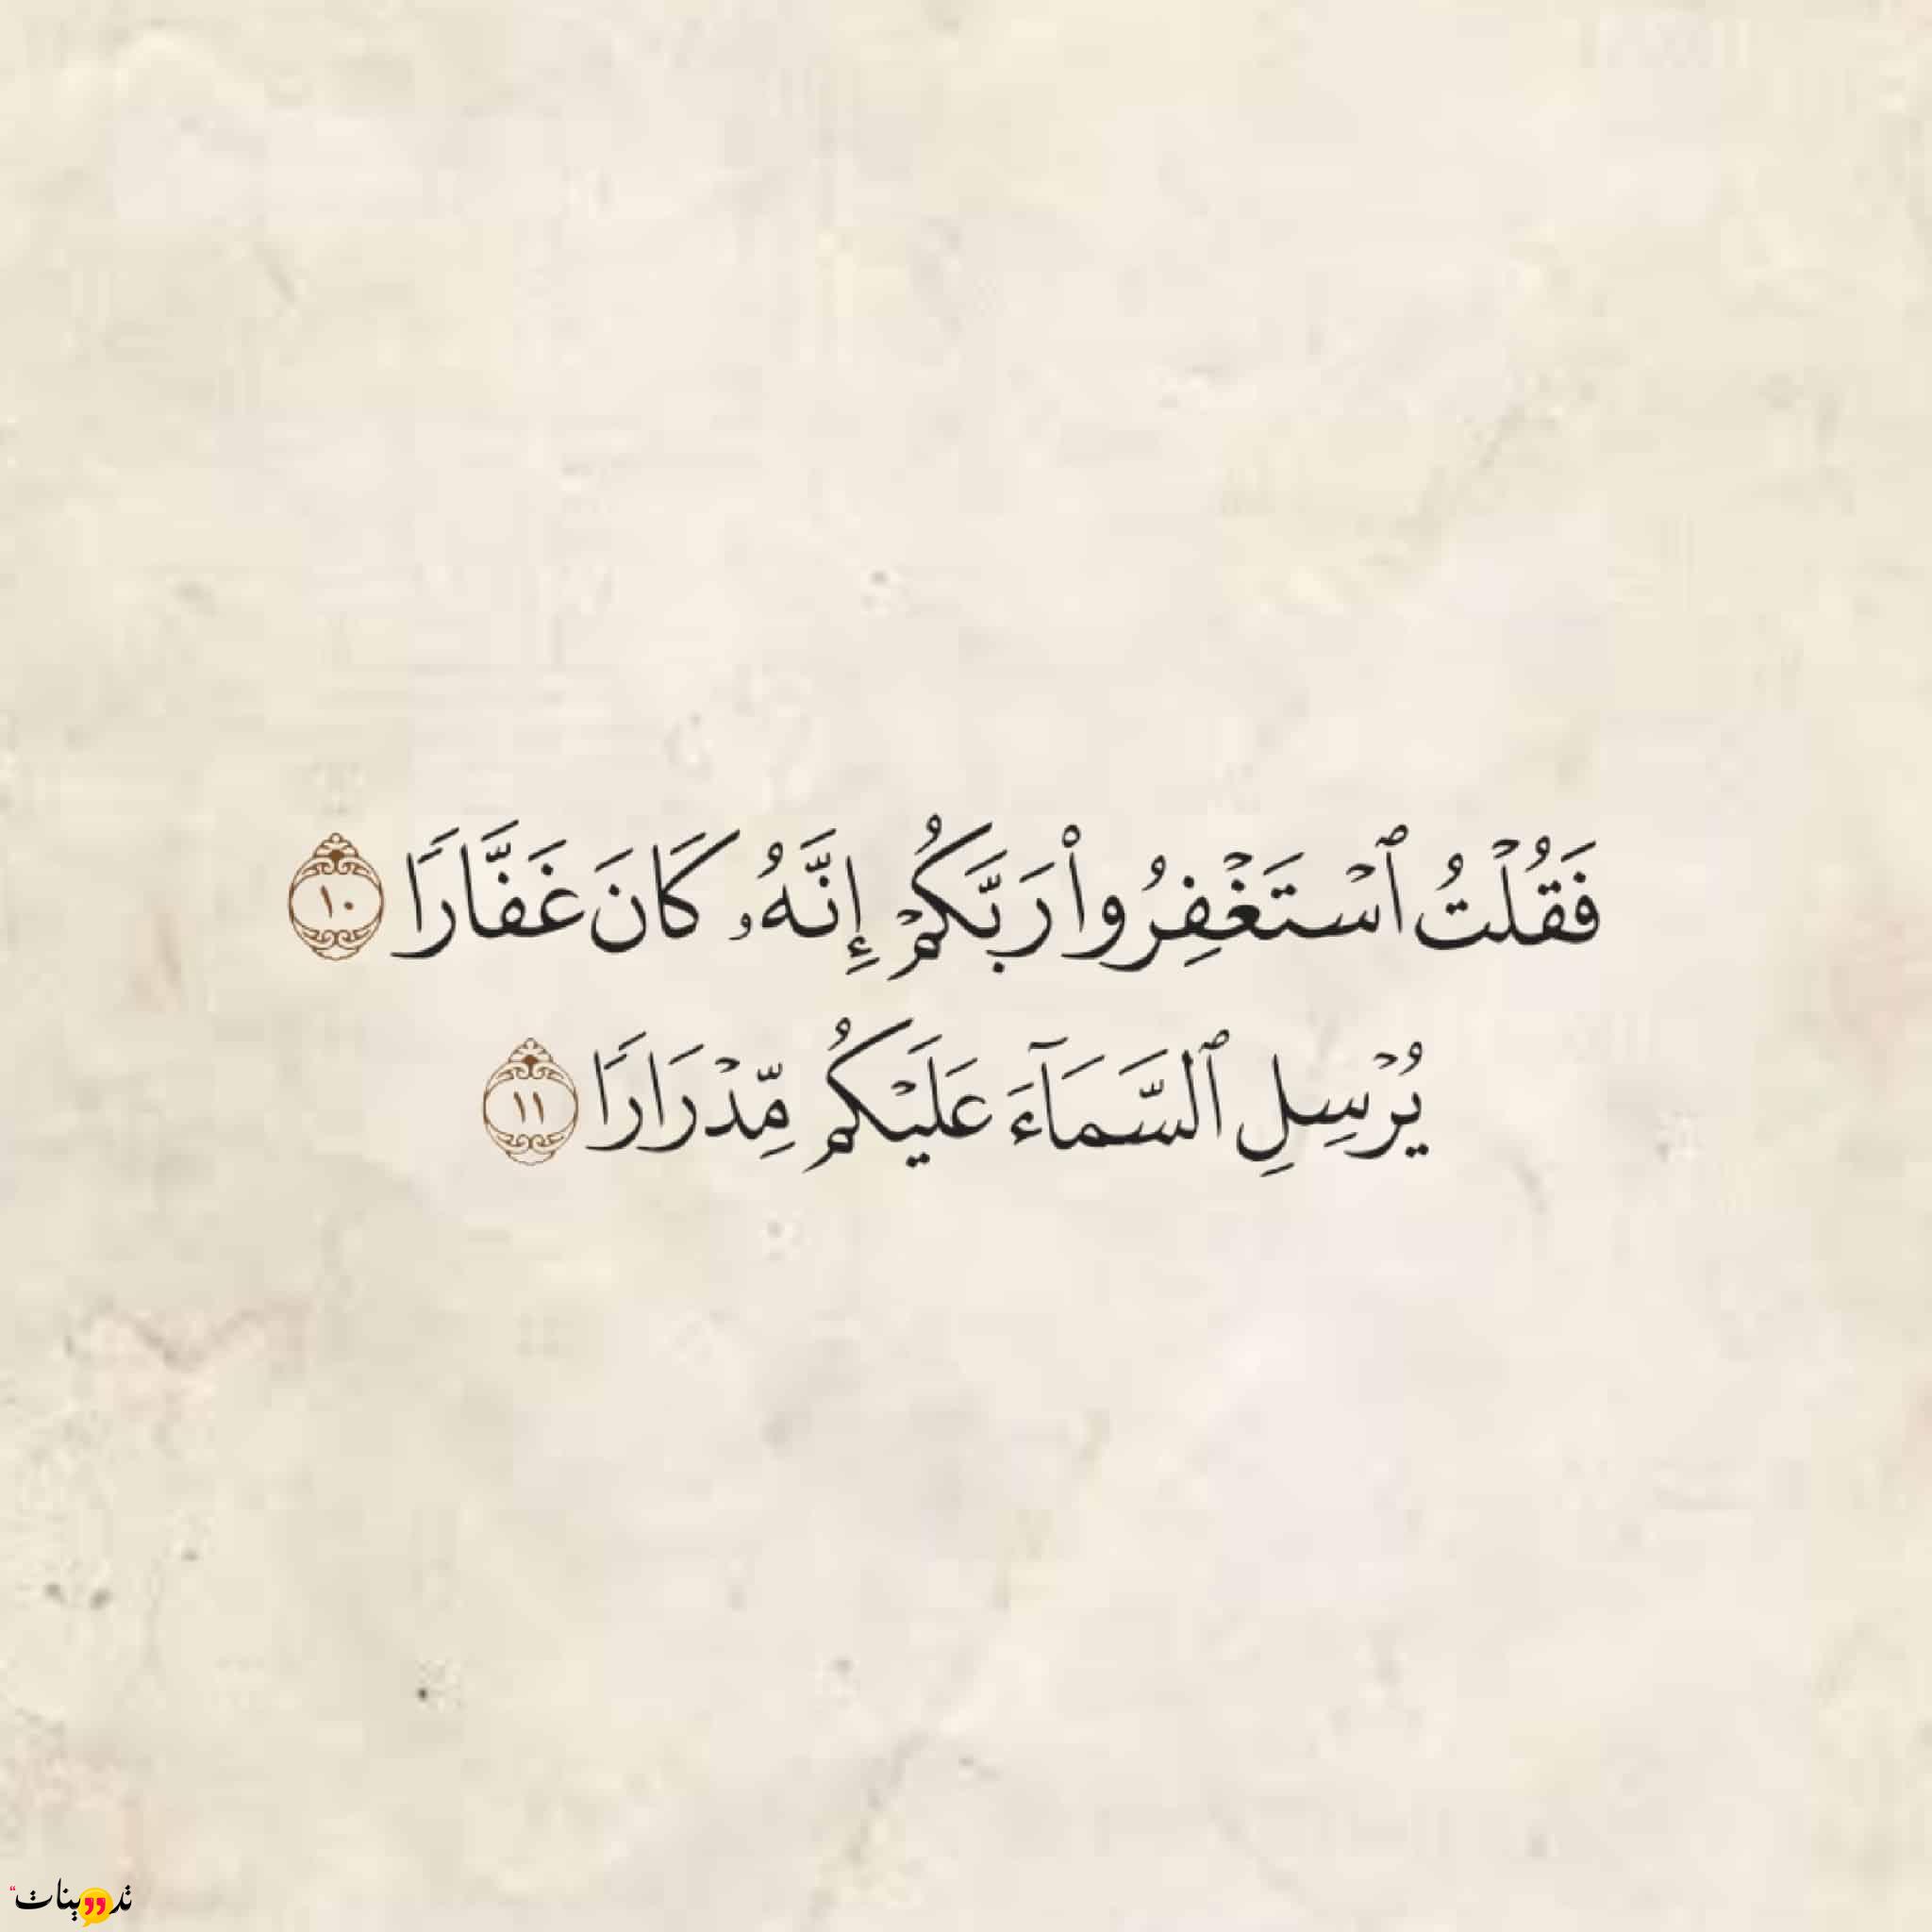 فَقُلۡتُ ٱسۡتَغۡفِرُواْ رَبَّكُمۡ إِنَّهُۥ كَانَ غَفَّارٗا ١٠
يُرۡسِلِ ٱلسَّمَآءَ عَلَيۡكُم مِّدۡرَارٗا ١١
تدوينات